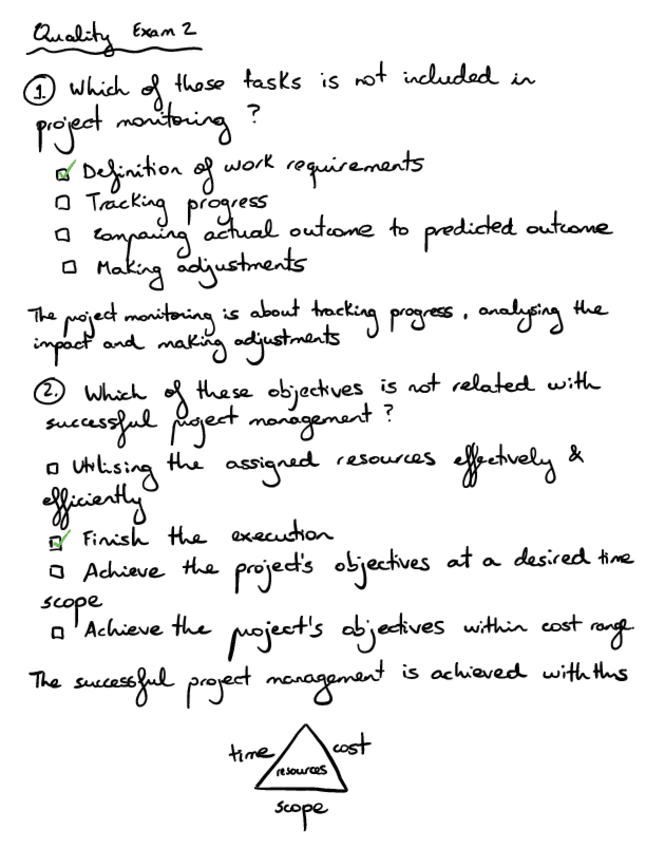 Quality Exam 2
1. Which of these tasks is not included in
project monitoring ?
Definition of work requirements
Tracking progress
Comparing actual outcome to predicted outcome
Making adjustments
The project monitoring is about tracking progress, analysing the
impact and making adjustments
2. Which of these objectives is not related with
successful project management ?
Utilising the assigned resources effectively &
efficiently
Finish the execution
Achieve the project's objectives at a desired time
scope
Achieve the project's objectives within cost range
The successful project management is achieved with this
time cost
resources
scope